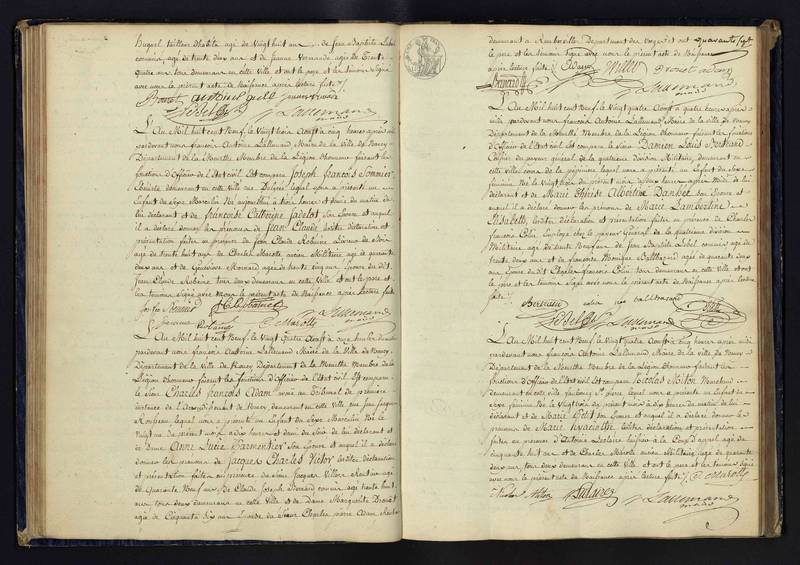 huguet tailleur d'habits agé de Vingt huit ans de Jean Baptiste Lebel
commis, agé de trente deux ans et de Jeanne Bernarde agée de Trente
quatre ans tous demeurans en cette Ville et ont le pere et les temoins Signé
avec nous le présent acte de Naissance après lecture faite
Lallemand
L'An Mil huit cent Neuf, le Vingt trois Aoust à cinq heures après midi
pardevant nous françois Antoine Lallemand Maire de la Ville de Nancy
Département de la Meurthe Membre de la Légion d'honneur faisant les
fonctions d'Officier de l'Etat civil Est comparu Joseph françois Sommier
demeurant en cette ville rue lequel nous a présenté un
Enfant du Sexe Masculin Né aujourd'hui à trois heures et demie du matin de
lui déclarant et de françoise Catherine Jadelot Son Epouse et auquel
il a déclaré donner les prénoms de Jean Claude les dites déclaration et
présentation faites en presence de Jean Claude Robaine
agé de trente huit ans de Charles Marotte ancien Militaire agé de quarante
deux ans et de Genevieve Mornard agée de trente cinq Epouse du dit
Jean Claude Robaine tous demeurans en cette Ville et ont le pere et
les temoins Signé avec nous le présent acte de Naissance après lecture faite
Joseph Sommier
C. Marotte
Lallemand
L'An Mil huit cent Neuf le Vingt quatre Aoust à onze heures du matin
pardevant nous françois Antoine Lallemand Maire de la Ville de Nancy
Département de la Meurthe Membre de la
Légion d'honneur faisant les fonctions d'Officier de l'Etat civil Est comparu
le Sieur Charles françois Adam avoué au Tribunal de première
instance de l'Arrondissement de Nancy demeurant en cette ville rue Jean Jacques
Rousseau, lequel nous a présenté un Enfant du Sexe Masculin Né le
Vingt un du présent mois à dix heures et demie du Soir de lui déclarant et
de Dame Anne Lucie Parmentier Son Epouse et auquel il a déclaré
donner les prénoms de Jacques Charles Victor les dites déclaration
et présentation faites en présence du Sieur Jacques Villers Rentier agé
de Quarante Neuf ans, de Claude Joseph Bernard commis agé trente huit
ans tous deux demeurans en cette ville et de Dame Marguerite Drouot
agée de Cinquante dix ans Epouse du Sieur Charles Adam Rentier
demeurant à Rambervillers Département des Vosges et ont
le pere et les temoins Signé avec nous le présent acte de Naissance
après lecture faite
Adam Villers Drouot Adam
Bernard
Lallemand
L'An Mil huit cent Neuf, le Vingt quatre Aoust à quatre heures après
midi pardevant nous françois Antoine Lallemand Maire de la ville de Nancy
Département de la Meurthe Membre de la Légion d'honneur faisant les fonctions
d'Officier de l'Etat civil Est comparu le Sieur Damien Louis
Caissier du payeur général de la quatrieme division Militaire, demeurant en
cette Ville cours de la pépinière lequel nous a présenté un Enfant du Sexe
feminin Né le Vingt trois du présent mois à deux heures après Midi de lui
déclarant et de Marie Thérèse Albertine Son Epouse et
auquel il a déclaré donner les prénoms de Marie Lambertine
Elisabeth les dites déclaration et présentation faites en présence de Charles
françois Colin Employé chez le payeur Général de la quatrieme division
Militaire agé de trente Neuf ans de Jean Baptiste Lebel commis agé de
trente deux ans et de françoise Monique Balthazard agée de quarante deux
ans Epouse du dit Charles françois Colin tous demeurans en cette Ville et ont
le pere et les temoins Signé avec nous le présent acte de Naissance après lecture
faite
Lallemand
L'An Mil huit cent Neuf le Vingt quatre Aoust à cinq heures après midi
pardevant nous françois Antoine Lallemand Maire de la ville de Nancy
Département de la Meurthe Membre de la Légion d'honneur faisant les
fonctions d'Officier de l'Etat civil Est comparu Nicolas Milon
demeurant en cette ville faubourg St pierre, lequel nous a présenté un Enfant du
Sexe feminin Né le Vingt trois du présent mois à dix heures du matin de lui
déclarant et de Marie Petit Son Epouse et auquel il a déclaré donner les
prénoms de Marie hyacinthe les dites déclaration et présentation
faites en presence d'Antoine huissier à la Cour d'appel agé de
cinquante huit ans et de Charles Marotte ancien Militaire agé de quarante
deux ans, tous deux demeurans en cette ville et ont le pere et les temoins Signé
avec nous le présent acte de Naissance après lecture faite C Marotte
Nicolas Milon
Lallemand